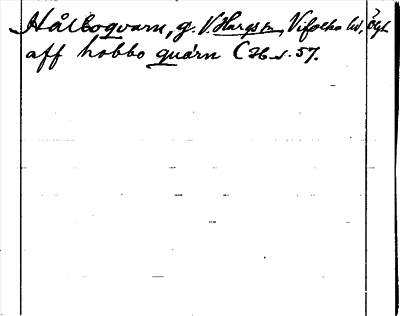 Hålboqvarn, g. V. Hargs sn, Vifolka hd, Ögl.
aff hobbo quarn C